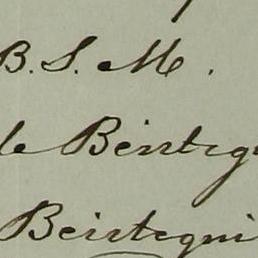 B. S. M.
de Beistegui
Beistegui